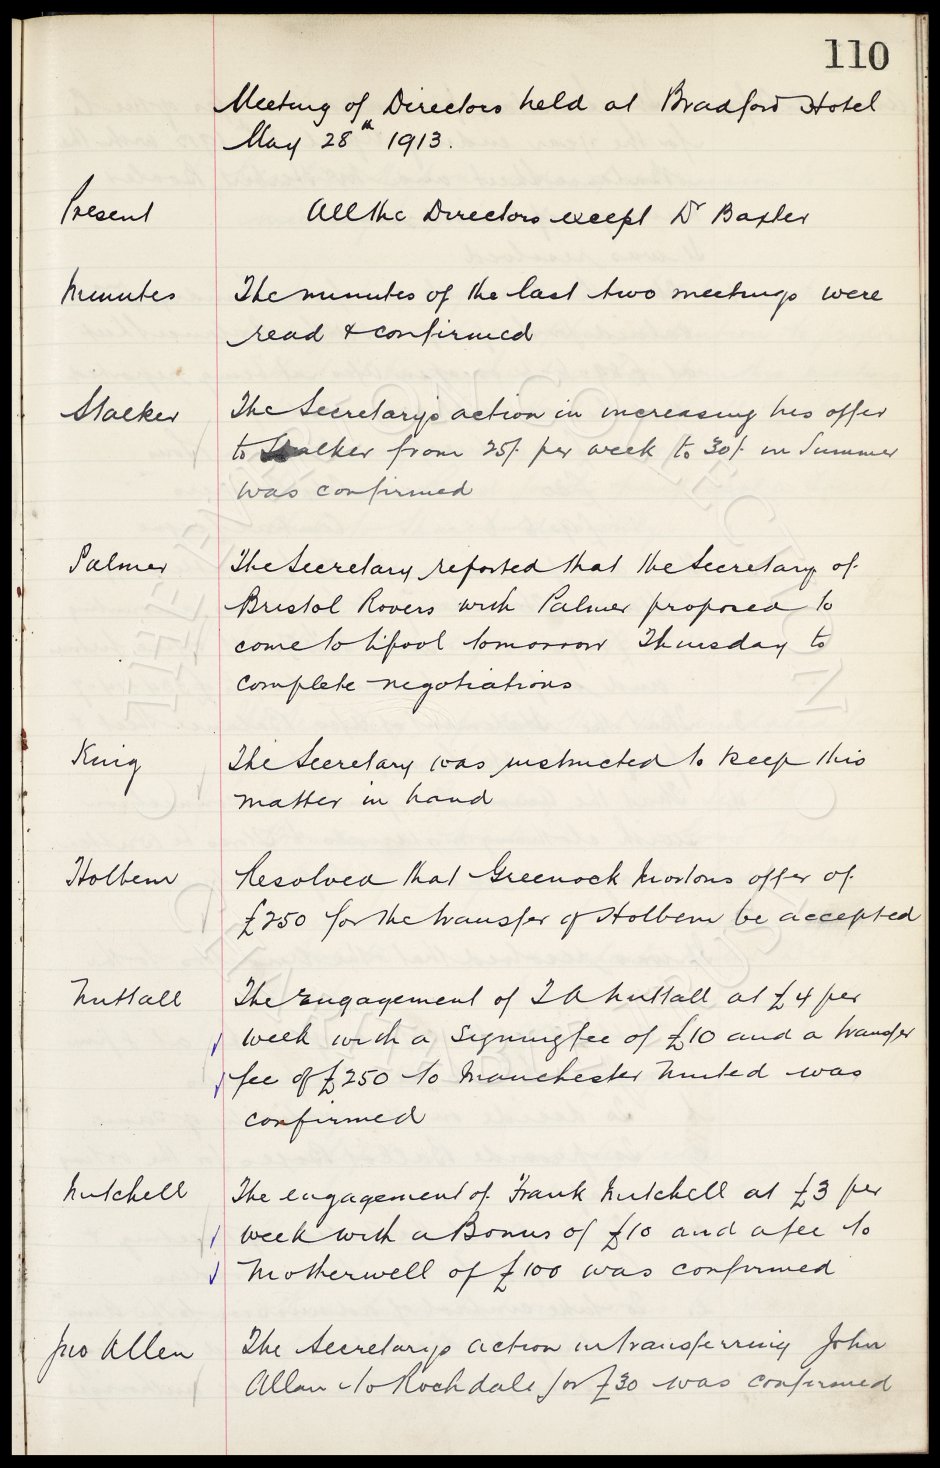 110
Meeting of Directors held at Bradford Hotel
May 28th 1913.
Present All the Directors except Dr Baxter
Minutes The minutes of the last two meetings were
read & confirmed
Stalker The Secretary's action in increasing his offer
to Stalker from 25/- per week to 30/- in Summer
was confirmed
Palmer The Secretary reported that the Secretary of
Bristol Rovers with Palmer proposed to
come to L'pool tomorrow Thursday to
complete negotiations
King The Secretary was instructed to keep this
matter in hand
Holbem Resolved that Greenock Mortons offer of
£250 for the transfer of Holbem be accepted
Nuttall The engagement of T A Nuttall at £4 per
week with a signing fee of £10 and a transfer
fee of £250 to Manchester United was
confirmed
Mitchell The engagement of Frank Mitchell at £3 per
week with a Bonus of £10 and a fee to
Motherwell of £100 was confirmed
Jno Allen The Secretary's action in transferring John
Allan to Rochdale for £30 was confirmed